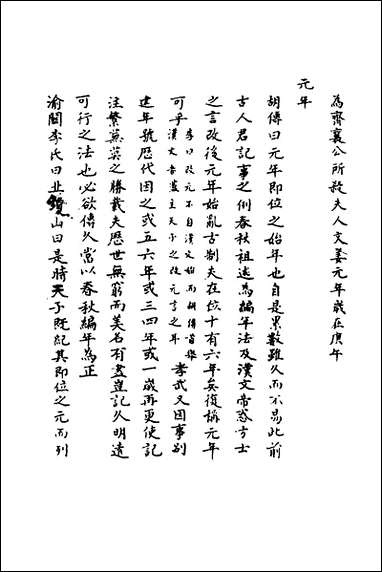 為齊襄公所殺夫人文姜元年歲在庚午
元年
胡傳曰元年即位之始年也自是累數雖久而不易此前
古人君記事之例春秋祖述為編年法及漢文帝惑方士
之言改後元年始亂古制夫在位十有六年矣復稱元年
可乎李口改元不自漢文始而胡傳首舉
漢文者蓋主天子之改元言之耳孝武又因事別
建年號歷代因之或五六年或三四年或一歲再更使記
注繁蕪莫之勝載夫歷世無窮而美名有盡豈記久明遠
可行之法也必欲傳久當以春秋編年為正
渝關李氏曰北鎮山曰是時天子既紀其即位之元而列